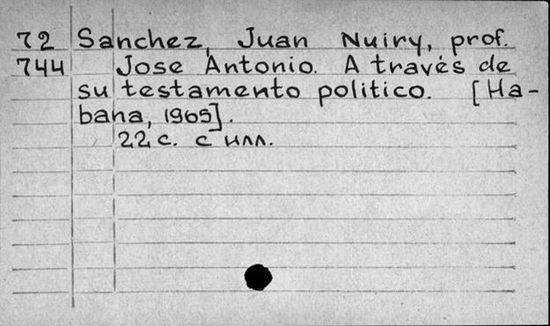 72 Sanchez, Juan Nuiry, prof.
744 Jose Antonio. A través de
su testamento politico. [Ha-
bana, 1965].
22 с. с илл.